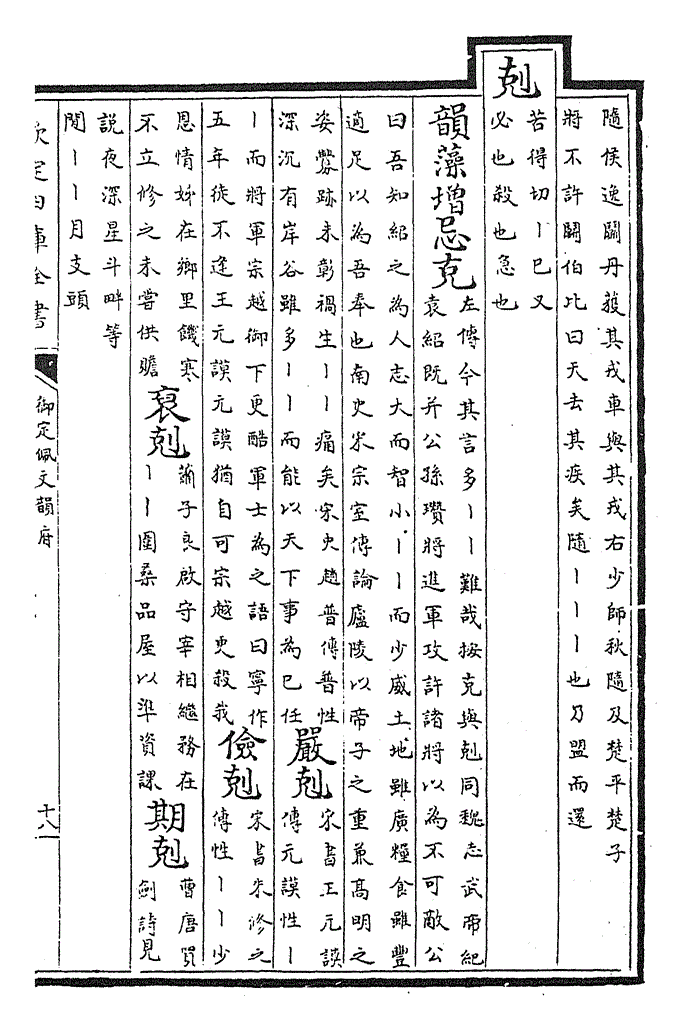 隨侯逸鬬丹䕶其戎車與其戎右少師秋隨及楚平楚子
將不許鬬伯比曰天去其疾矣隨丨丨丨也乃盟而還
剋
苦得切丨已又
必也殺也急也
韻藻增忌克
左傳今其言多丨丨難哉按克與剋同魏志武帝紀
袁紹既并公孫瓚將進軍攻許諸將以為不可敵公
曰吾知紹之為人志大而智小丨丨而少威土地雖廣糧食雖豐
適足以為吾奉也南史宋宗室傳論廬陵以帝子之重兼髙明之
姿釁跡未彰禍生丨丨痛矣宋史趙普傳普性
深沉有岸谷雖多丨丨而能以天下事為已任
嚴剋
宋書王元謨
傳元謨性丨
丨而將軍宗越御下更酷軍士為之語曰寧作
五年徒不逢王元謨元謨猶自可宗越更殺我
儉剋
宋書朱修之
傳性丨丨少
恩情姊在鄉里饑寒
不立修之未嘗供贍
裒剋
蕭子良啟守宰相繼務在
丨丨圍桑品屋以準資課
期剋
曹唐買
劍詩見
說夜深星斗畔等
閒丨丨月支頭
欽定四庫全書
御定佩文韻府
十八